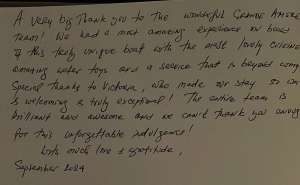 A very big Thank you to the wonderful
Team! We had a most amazing experience on board
of this truly unique boat with the most lovely
amazing water toys and a service that is beyond
Special thanks to Victoria, who made our stay so
& welcoming & truly exceptional! The entire team is
brilliant and awesome and we can't thank you enough
for this unforgettable indulgence!
With much love & gratitude,
September 2024